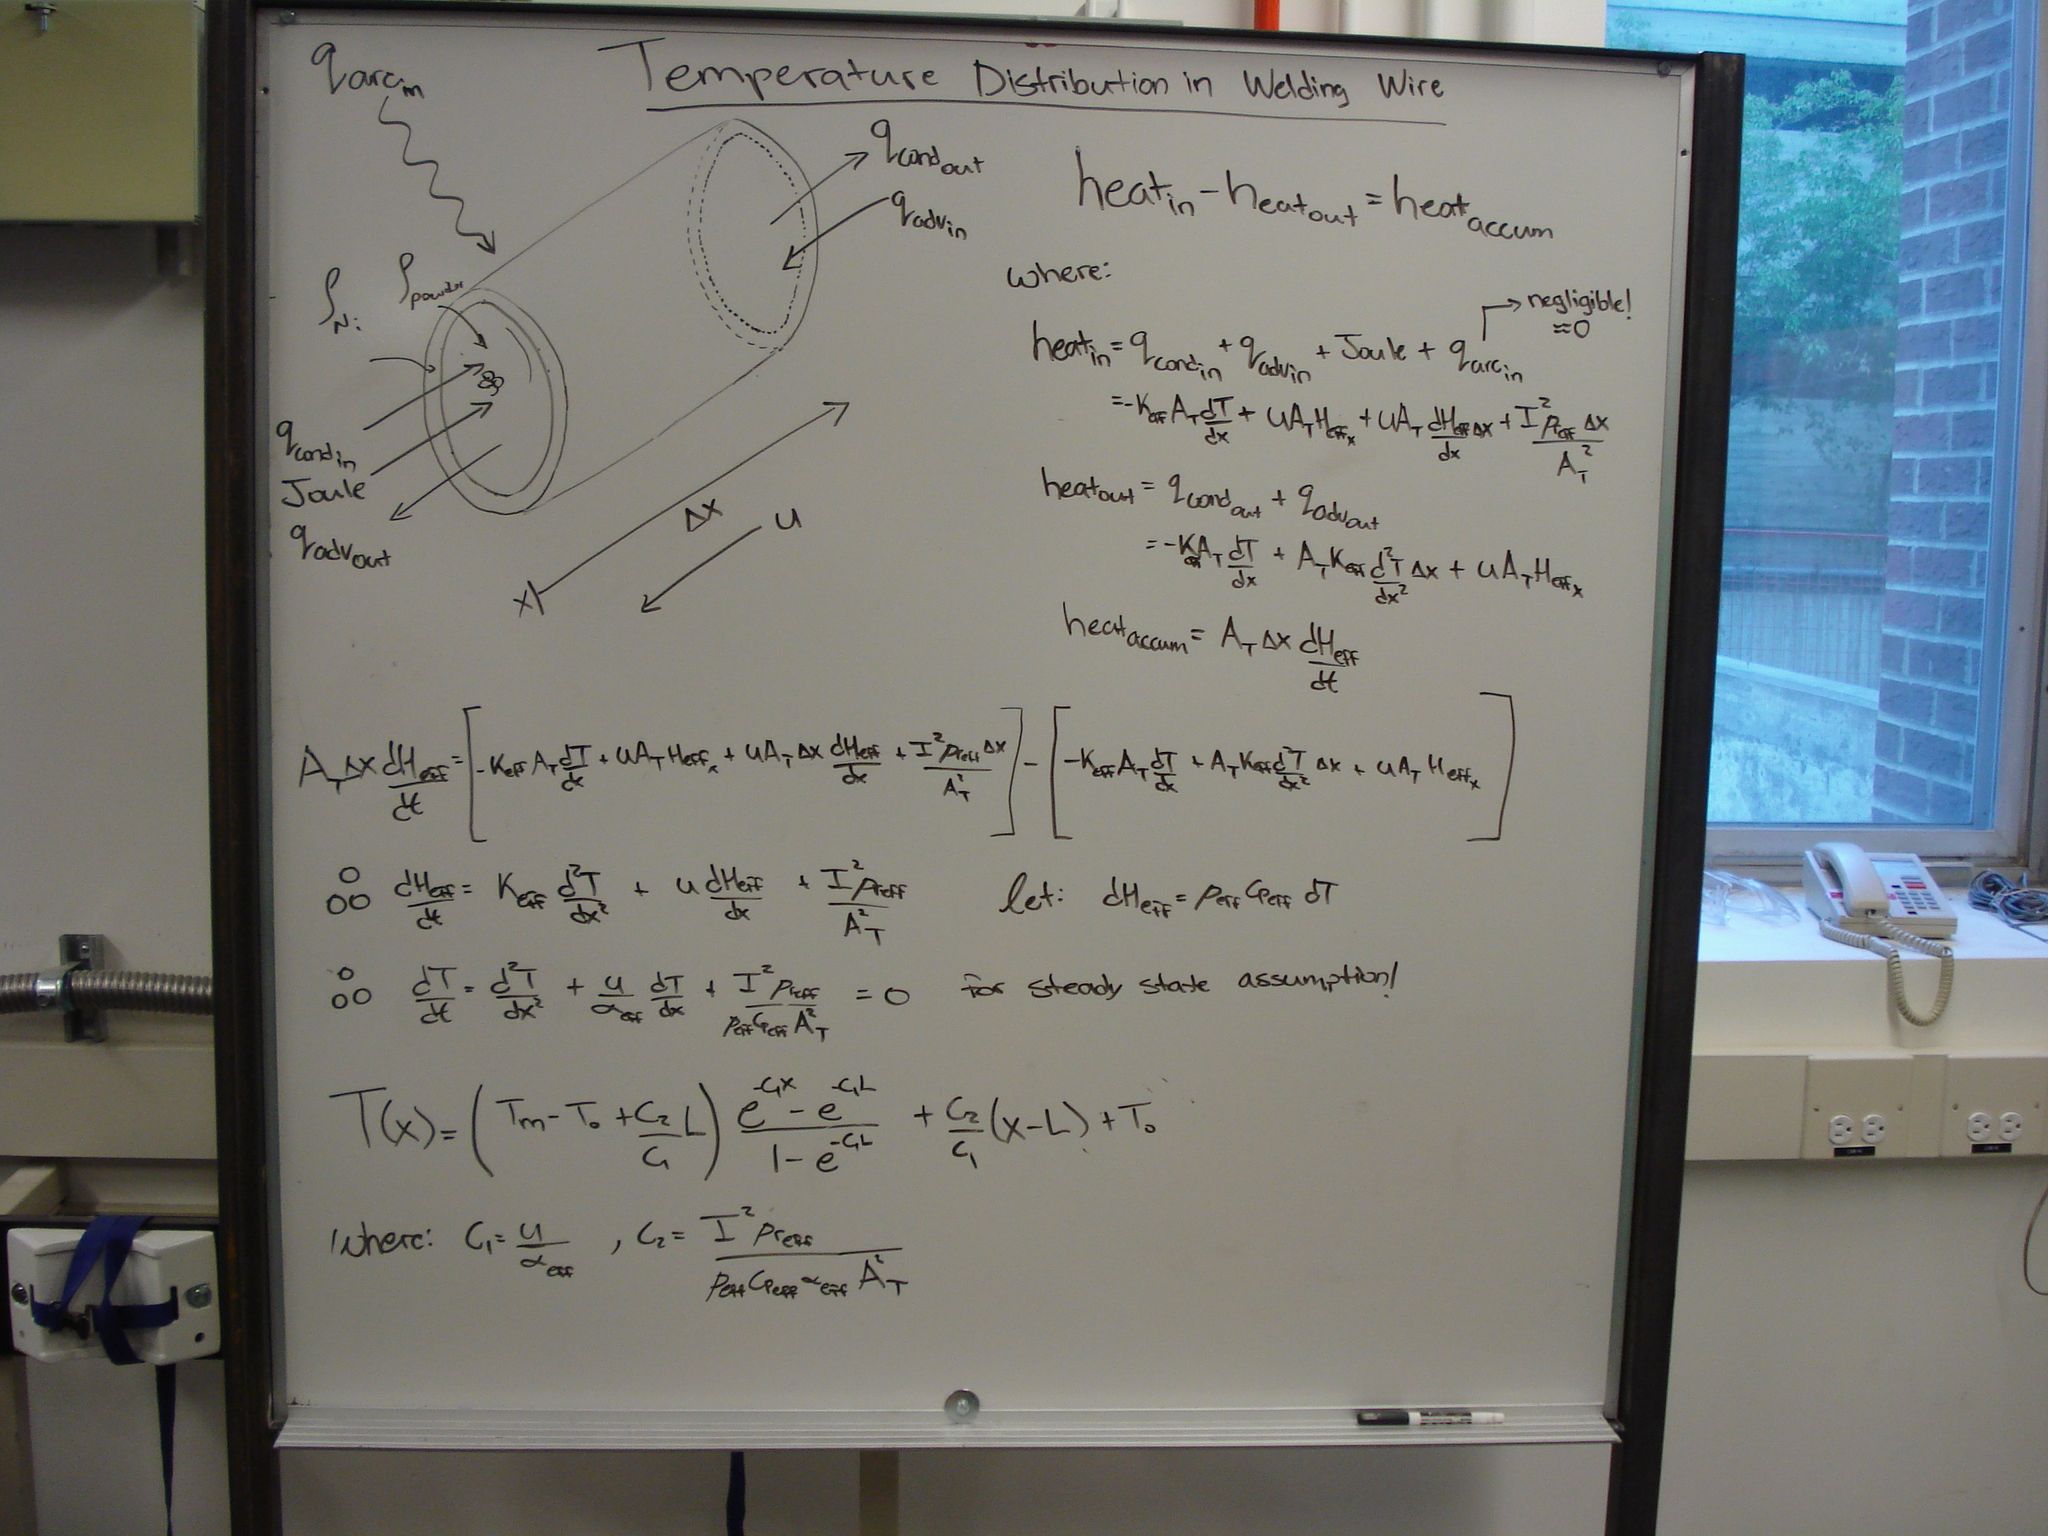 Temperature Distribution in Welding Wire
q_arc_in
q_cond_out
q_adv_in
ρ_Ni
ρ_powder
q_cond_in
Joule
q_adv_out
Δx
u
x
heat_in - heat_out = heat_accum
where:
→ negligible!
≈0
heat_in = q_cond_in + q_adv_in + Joule + q_arc_in
= -K_eff A_T dT/dx + uA_T H_eff_x + uA_T dH_eff/dx Δx + I² ρ_r_eff Δx / A_T²
heat_out = q_cond_out + q_adv_out
= -K_eff A_T dT/dx + A_T K_eff d²T/dx² Δx + uA_T H_eff_x
heat_accum = A_T Δx dH_eff/dt
A_T Δx dH_eff/dt = [-K_eff A_T dT/dx + uA_T H_eff_x + uA_T Δx dH_eff/dx + I² ρ_r_eff Δx / A_T²] - [-K_eff A_T dT/dx + A_T K_eff d²T/dx² Δx + uA_T H_eff_x]
∴ dH_eff/dt = K_eff d²T/dx² + u dH_eff/dx + I² ρ_r_eff / A_T² let: dH_eff = ρ_eff Cp_eff dT
∴ dT/dt = d²T/dx² + u/α_eff dT/dx + I² ρ_r_eff / ρ_eff Cp_eff A_T² = 0 for steady state assumption!
T(x) = (T_m - T_o + C_2/C_1 L) (e^(-C_1x) - e^(-C_1L)) / (1 - e^(-C_1L)) + C_2/C_1 (x-L) + T_o
where: C_1 = u/α_eff , C_2 = I² ρ_r_eff / ρ_eff Cp_eff α_eff A_T²